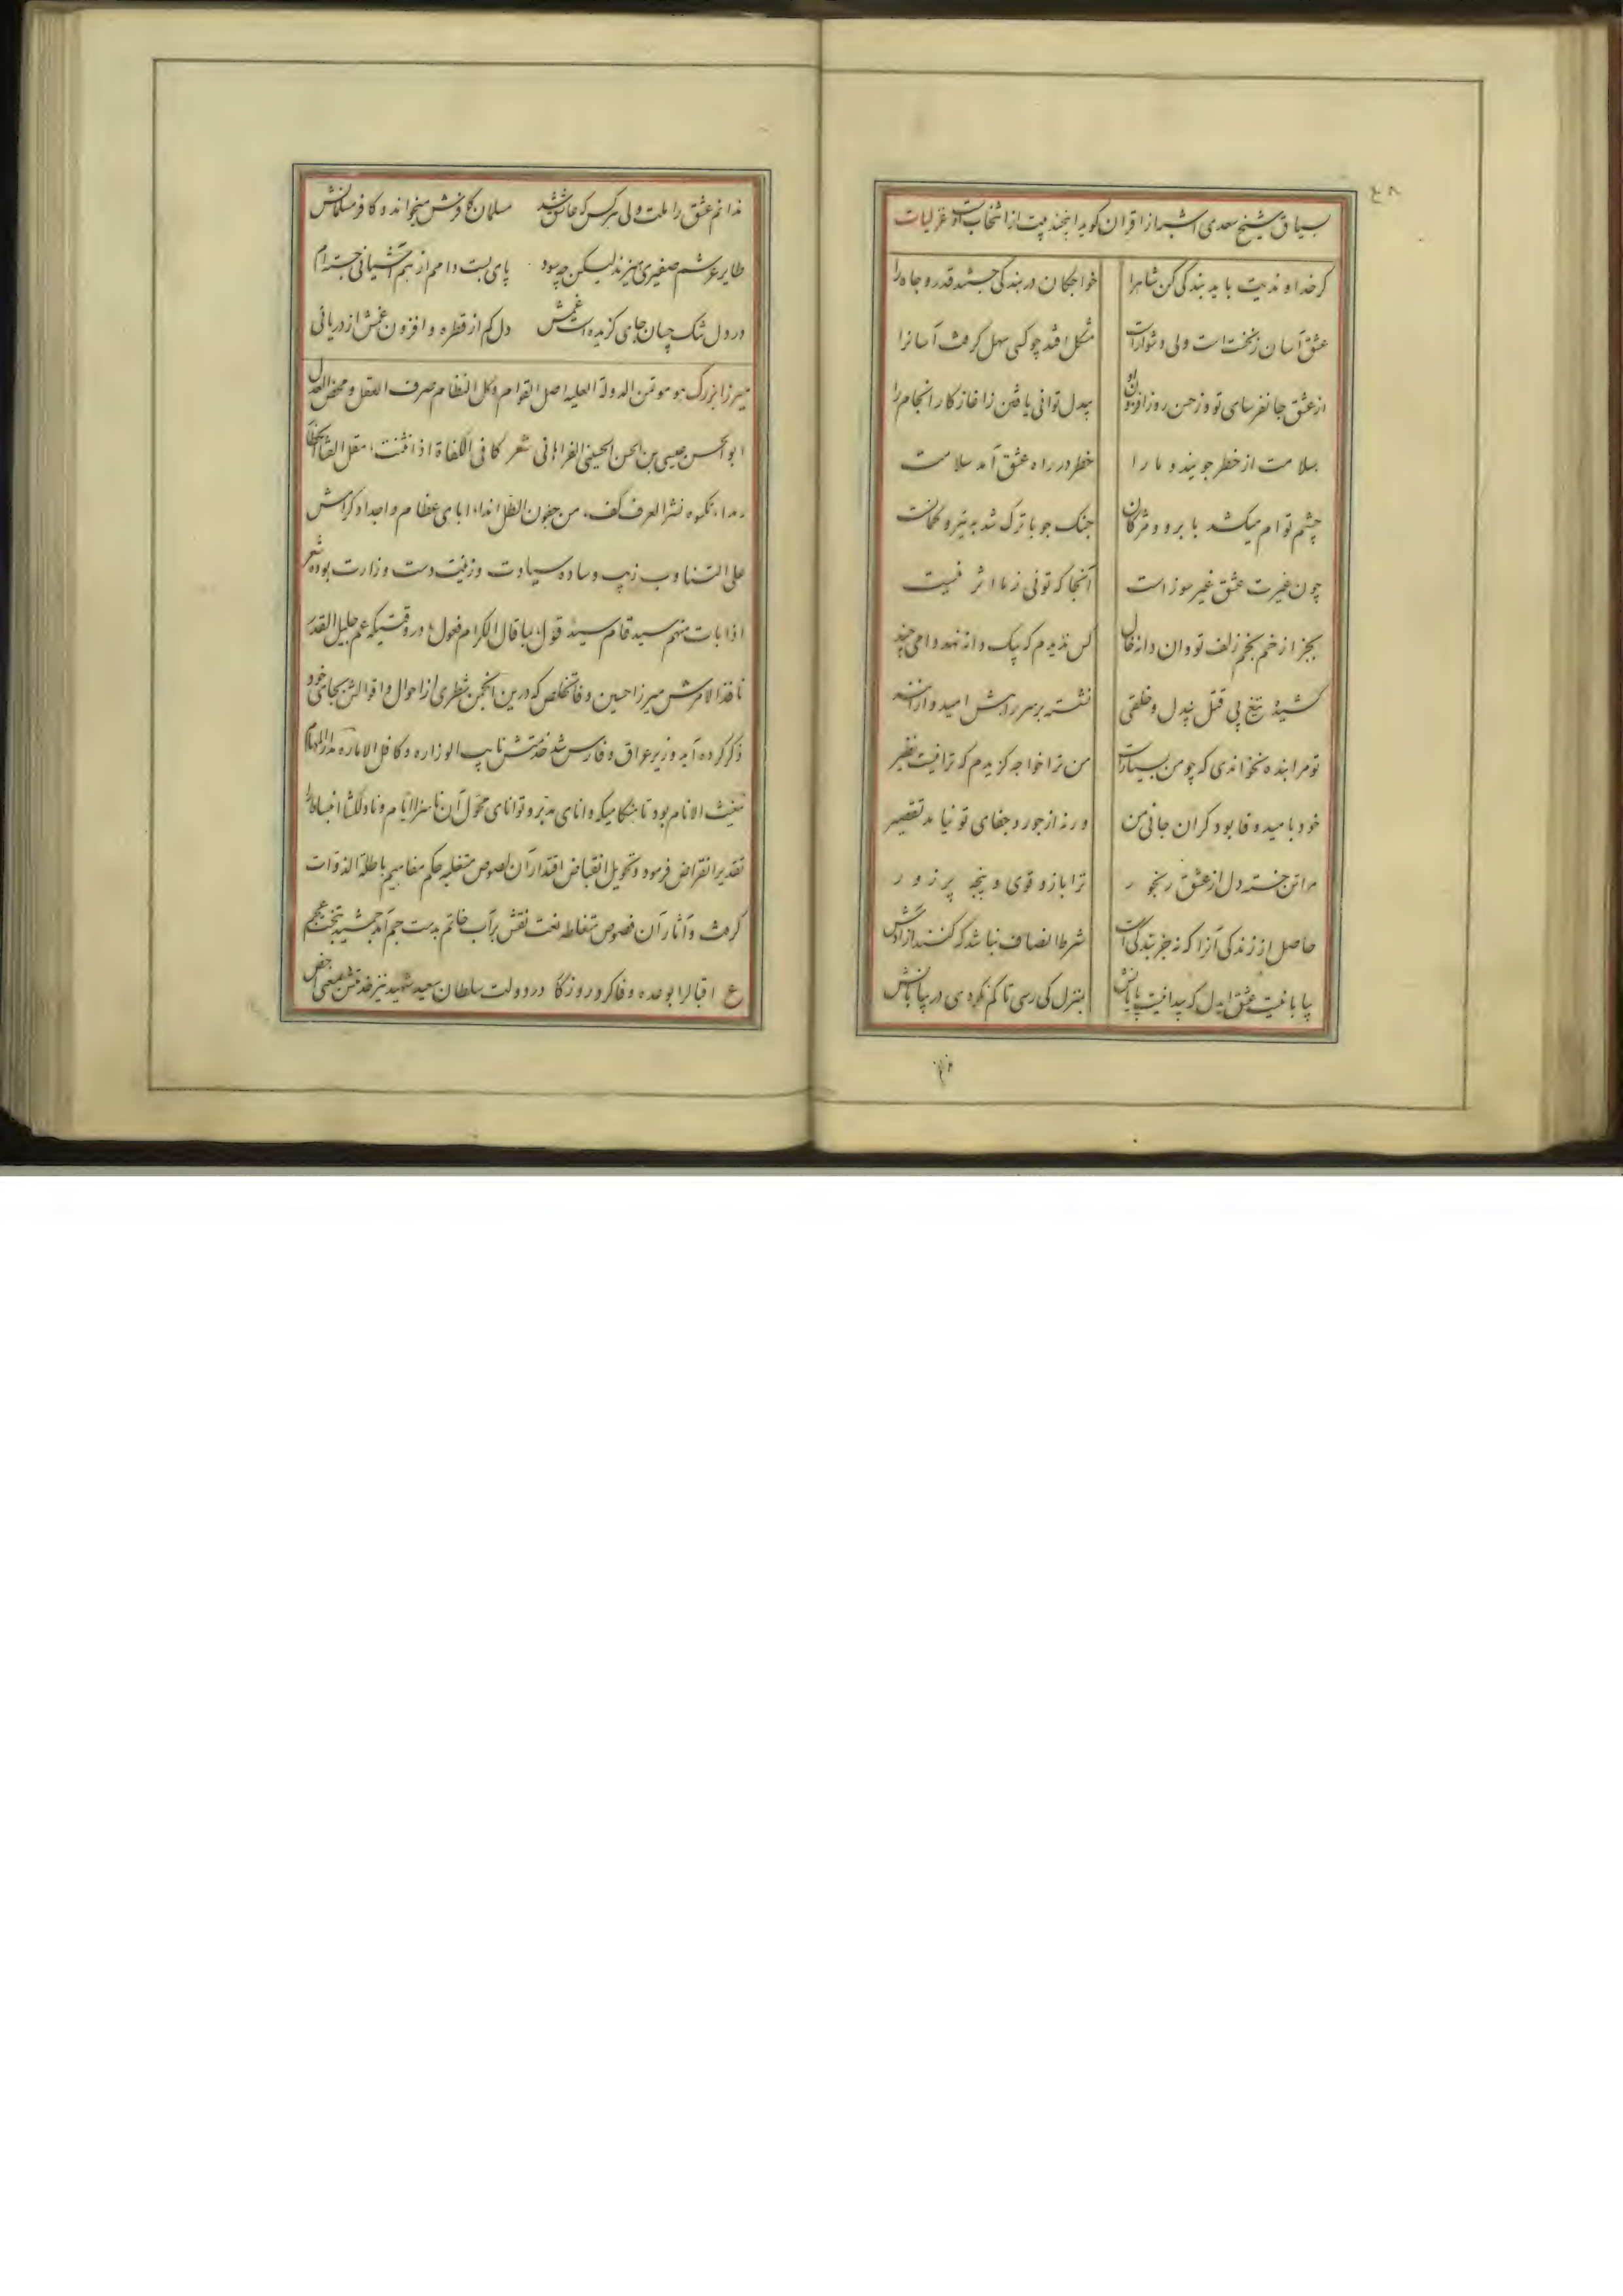 ۴۸
بسیاق شیخ سعدی اشبه از اقران گوید اینچند بیت از انتخاب اوست غزلیات
گر خداوندیت باید بندگی کن شاه را خواجگان در بندگی جستند قدر و جاه را
عشق آسان ز نخست است ولی دشوارست مشکل افتد چو کسی سهل گرفت آسانرا
از عشق جانفرسای تو وز حسن روز افزون تو بیدل توانی یافتن ز اغاز کار انجام را
بسلامت از خطر جویند و ما را خطر در راه عشق آمد سلامت
چشم توام میکشد با برو و مژگان جنک جو با ترک شد به تیر و کمانت
چون غیرت عشق غیر سوز است آنجا که توئی ز ما اثر نیست
بجز از خم بخم زلف تو وان دانه خال کس ندیدم که بیک دانه نهد دامی چند
کشیده تیغ پی قتل بیدل و خلقی نشسته بر سر راهش امیدوارانند
تو مرا بنده نخواندی که چو من بسیارت من ترا خواجه گزیدم که ترا نیست نظیر
خود بامید وفا بود گران جانی من ورنه از جور و جفای تو نیامد تقصیر
مرا تن خسته دل از عشق رنجور ترا بازو قوی و پنجه پر زور
حاصل از زندگی آنرا که نه جز بندگی است شرط انصاف نباشد که کنند ازادش
بیابانیست عشق ایدل که پیدا نیست پایانش بمنزل کی رسی تا گم نگردی در بیابانش
ندانم عشق را ملت ولی هر کس که عاشق شد مسلمان کافرش میخواند و کافر مسلمانش
طایر عرشم صفیری میزند لیکن چه سود پای بست دامم از بهم آشیانی جسته ام
در دل تنک چسان جای گزیده است غمش دل کم از قطره و افزون غمش از دریائی
میرزا بزرگ هو موتمن الدولة العلیه اصل القوام و کل النظام صرف العقل و محض العدل
ابو الحسن عیسی بن الحسن الحسینی الفراهانی شعر کافی الکفاة اذا
نشر العرف کف، من جفون الطل انداء، ابای عظام و اجداد کرامش
علی التناوب زیب وساده سیادت و زینت دست وزارت بوده شعر
اذا بات منهم سید قام سید قول بما قال الکرام فعول در وقتیکه عم جلیل القدر
نافذ الامرش میرزا حسین وفا تخلص که درین انجمن شطری از احوال و اقوالش بجای خود
ذکر کرده آید وزیر عراق و فارس شد خدمتش نایب الوزاره و کافل الاماره مدار المهام
مغیث الانام بود تا هنگامیکه دانای مدبر و توانای محول آن ناسزا ایام را
تقدیر انقراض فرموده و تحویل انقباض اقتدار آن لصوص متغلبه حکم مفاهیم باطلة الذوات
گرفت و آثار آن فصوص متغالطه نعت نقش بر آب خاتم بدست جم آمد جمشید بتخت عجم
ع اقبال را بوعده وفا کرد روزگار در دولت سلطان سعید شهید نیز خدمتش بعضی